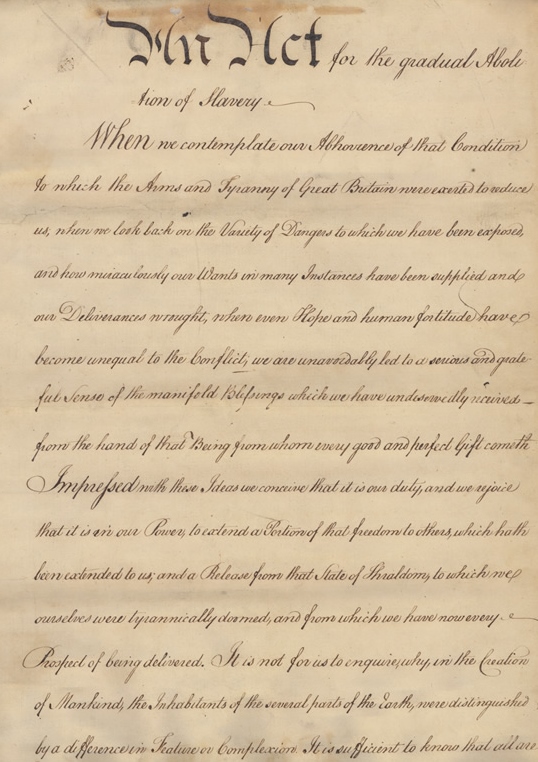 An Act for the gradual Aboli
tion of Slavery
When we contemplate our Abhorence of that Condition
to which the Arms and Tyranny of Great Britain were exerted to reduce
us, when we look back on the Variety of Dangers to which we have been exposed,
and how miraculously our Wants in many Instances have been supplied and
our Deliverances wrought, when even Hope and human fortitude have
become unequal to the Conflict; we are unavoidably led to a serious and grate
ful Sense of the manifold Blessings which we have undeservedly received
from the hand of that Being from whom every good and perfect Gift cometh
Impressed with these Ideas we conceive that it is our duty, and we rejoice
that it is in our Power, to extend a Portion of that freedom to others, which hath
been extended to us; and a Release from that State of Thraldom, to which we
ourselves were tyrannically doomed, and from which we have now every
Prospect of being delivered. It is not for us to enquire, why, in the Creation
of Mankind, the Inhabitants of the several parts of the Earth, were distinguished
by a difference in Feature or Complexion. It is sufficient to know that all are